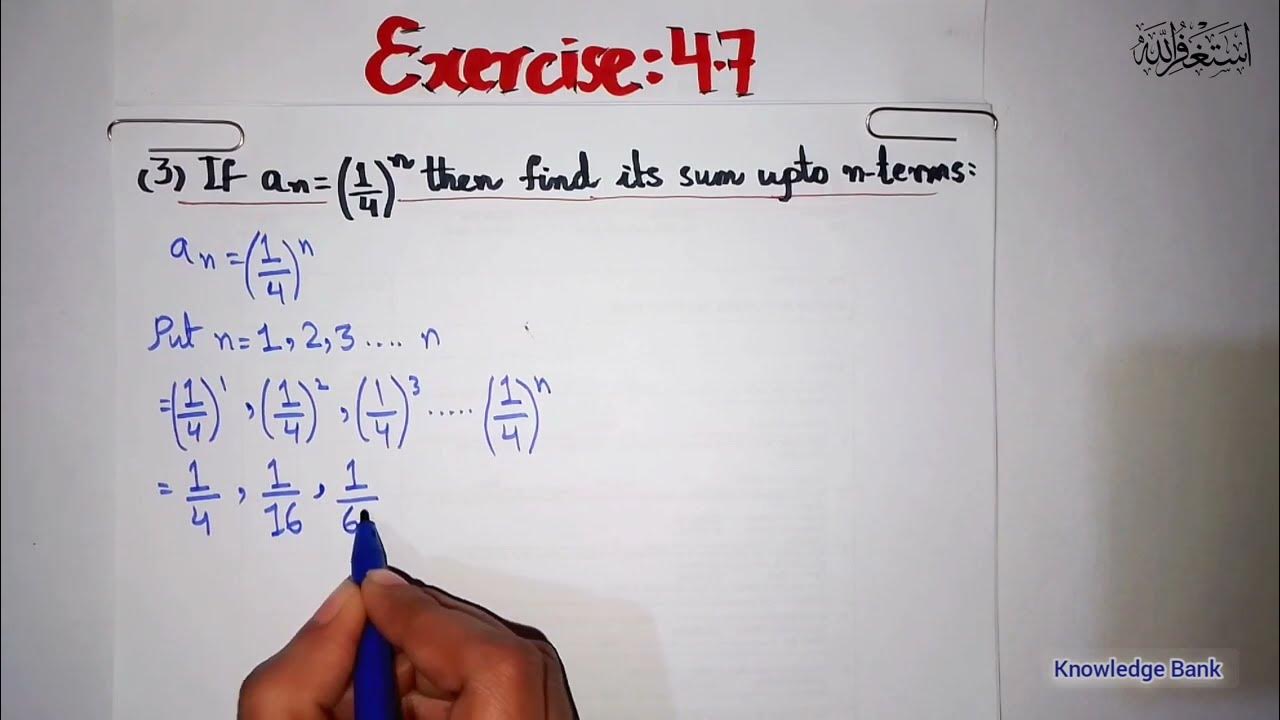 Exercise: 4.7
أستغفر الله
(3) If aₙ = (1/4)ⁿ then find its sum upto n-terms:
aₙ = (1/4)ⁿ
Put n = 1, 2, 3 .... n
= (1/4)¹, (1/4)², (1/4)³ ..... (1/4)ⁿ
= 1/4, 1/16, 1/6
Knowledge Bank